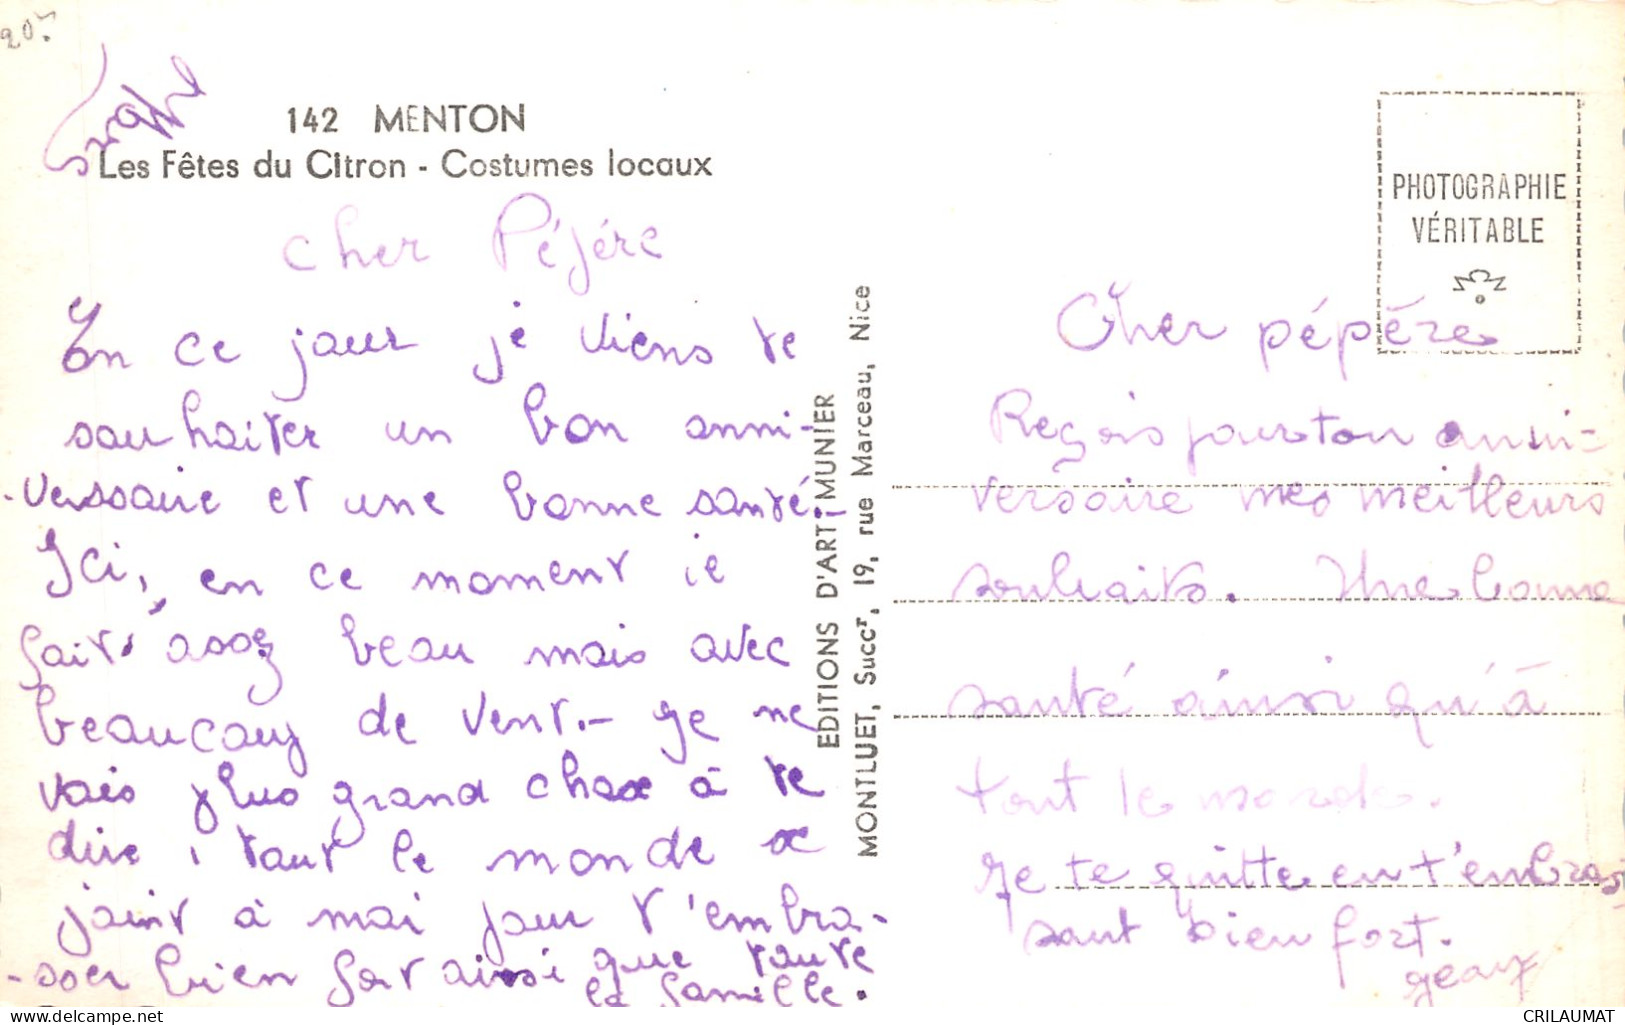 20.-
142 MENTON
Les Fêtes du Citron - Costumes locaux
Cher Pépére
En ce jour je viens te
souhaiter un bon anni-
-versaire et une bonne santé.-
Ici, en ce moment ie
fait assez beau mais avec
beaucoup de vent.- Je ne
vais plus grand chose à te
dire, tout le monde se
joint à moi pour t'embra-
-sser bien fort ainsi que toute
la famille.
EDITIONS D'ART MUNIER
MONTLUET, Succr, 19, rue Marceau, Nice
PHOTOGRAPHIE
VÉRITABLE
Cher pépère
Reçois pour ton anni-
versaire mes meilleurs
souhaits. Une bonne
santé ainsi qu'à
tout le monde.
Je te quitte en t'embras-
sant bien fort.
www.delcampe.net
CRILAUMAT